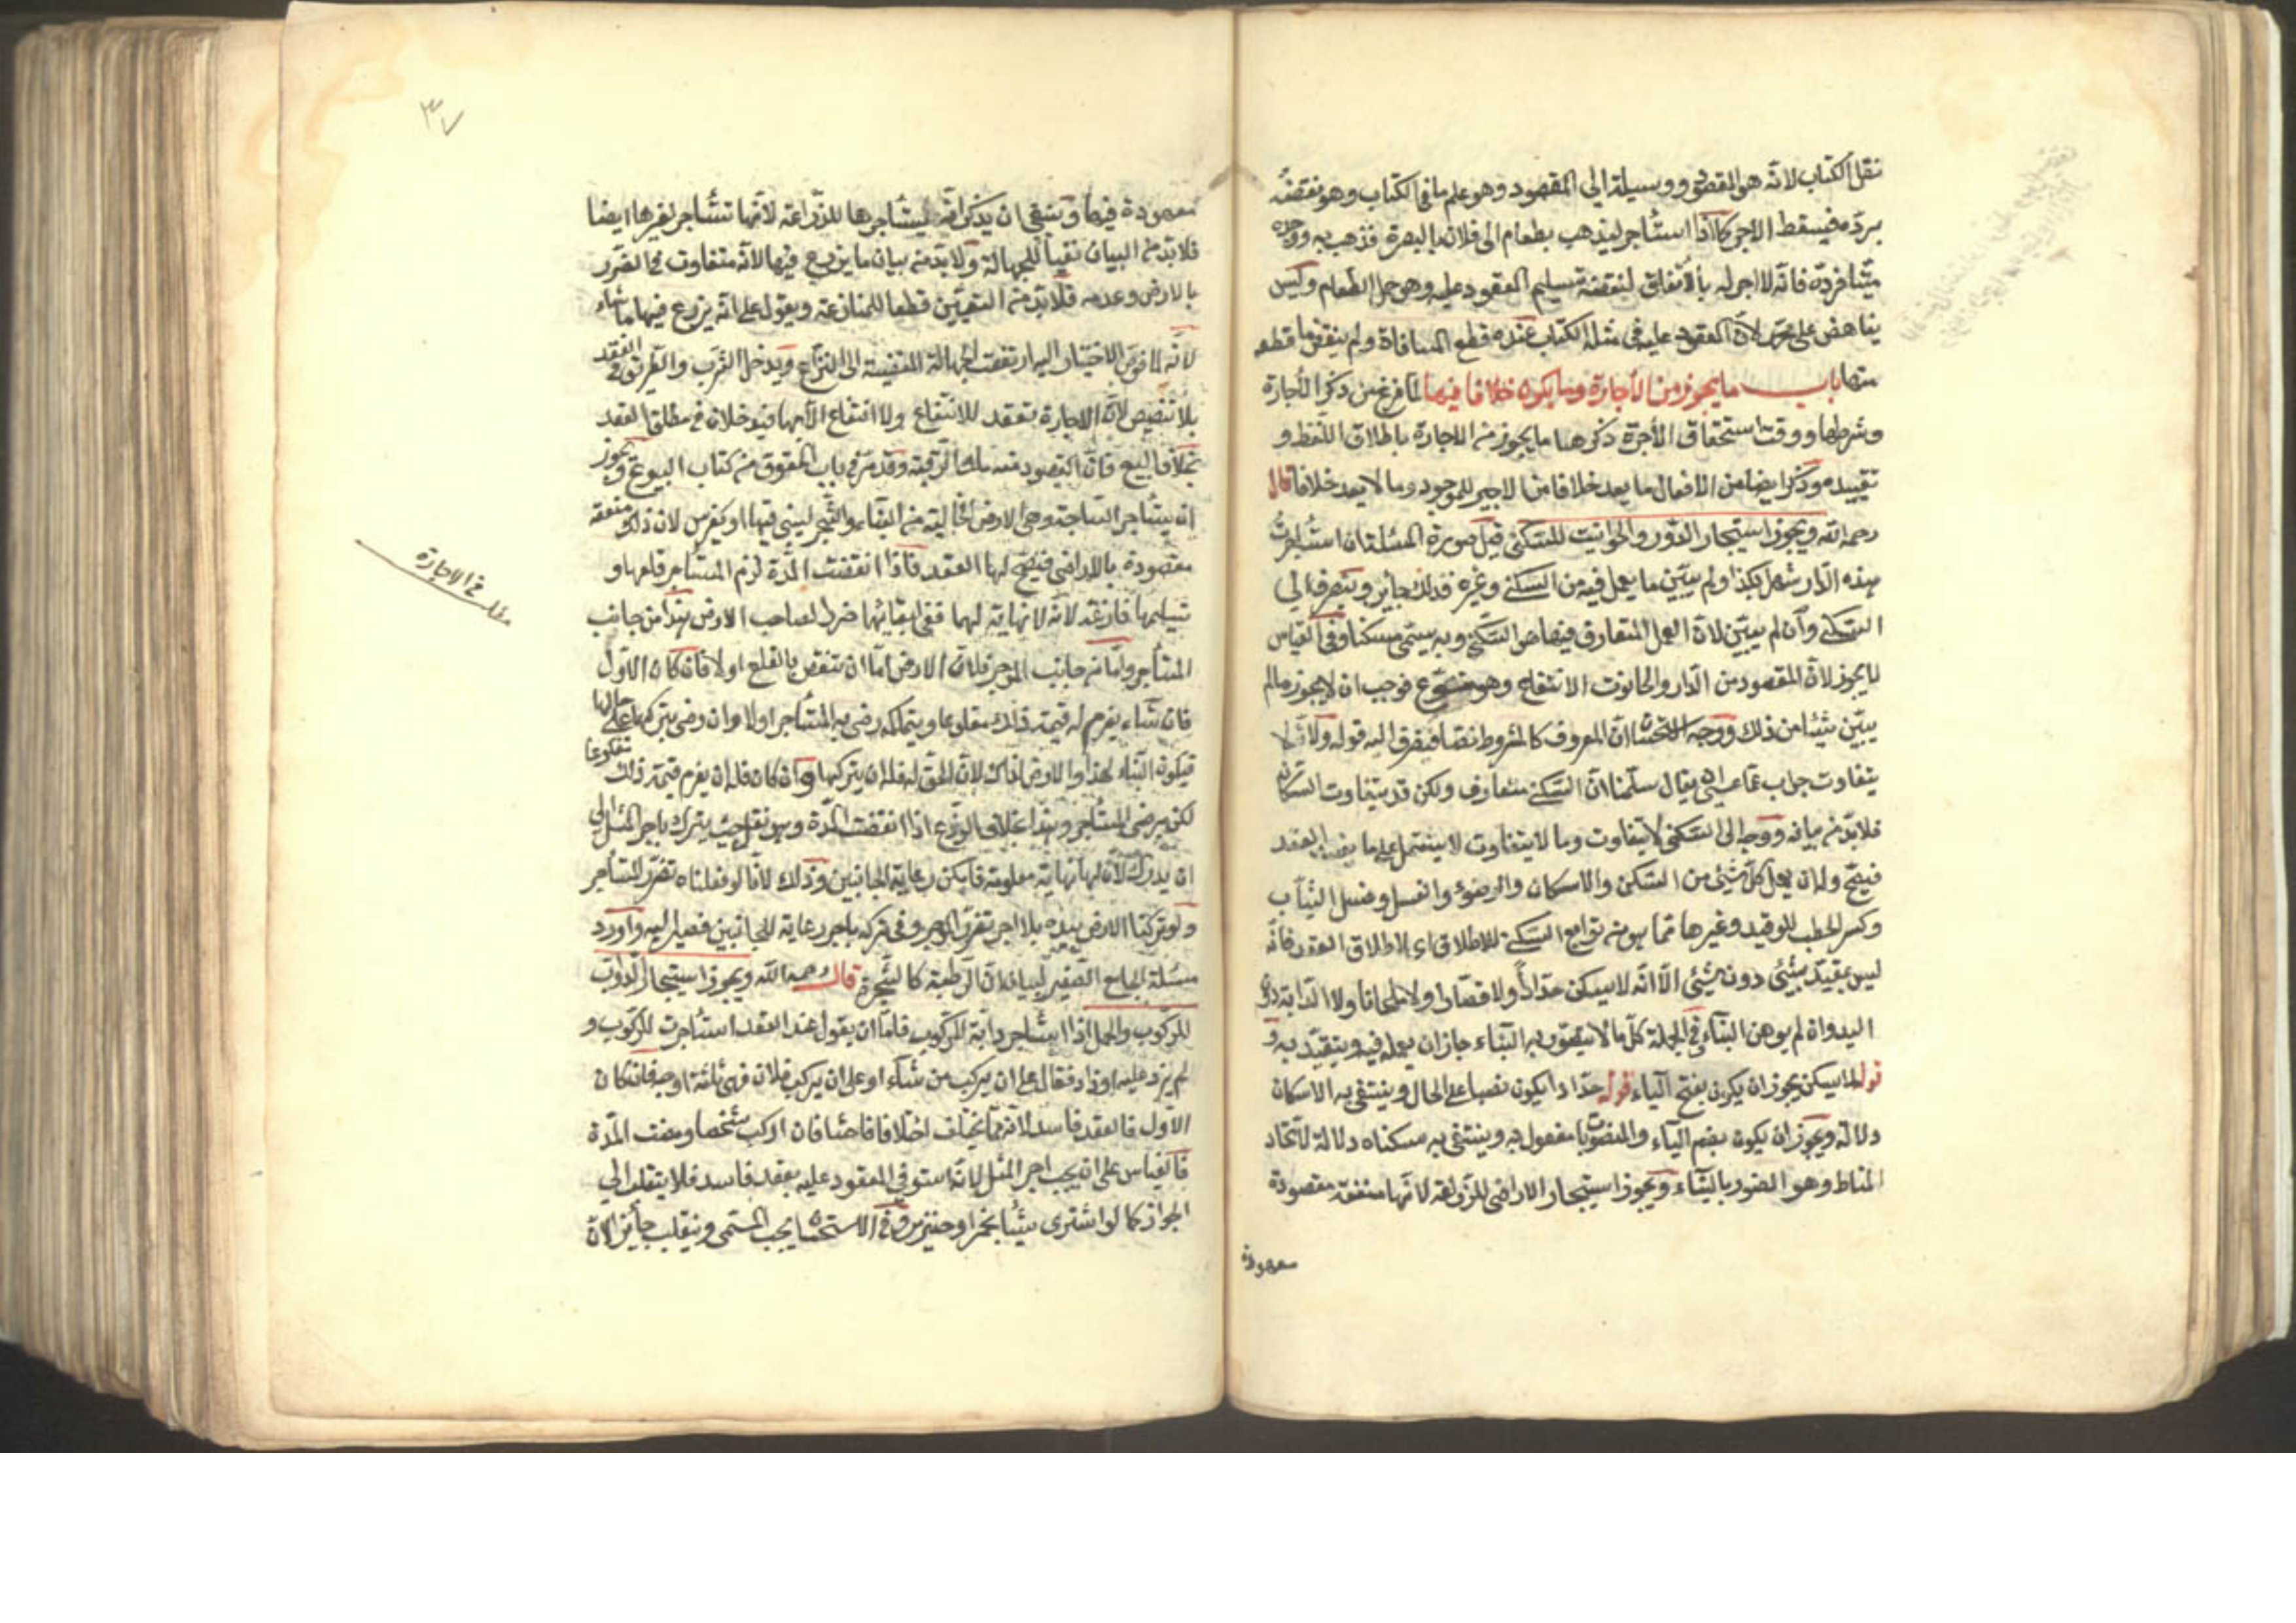 نقل الكتاب لانه هو المقصود او وسيلة الى المقصود وهو علم ما فى الكتاب وهو نقضه
برده فيسقط الاجر كما اذا استأجر ليذهب بطعام الى فلان بالبصرة فذهب به ووجده
ميتا فرده فانه لا اجر له بالاتفاق لنقضه تسليم المعقود عليه وهو حمل الطعام وليس
يناهض على محمد لان المعقود عليه فى مثله الكتاب عنده قطع المسافاة ولم ينقض ما قطعه
منها باب ما يجوز من الاجارة وما يكون خلافا فيها لما فرغ من ذكر الاجارة
وشرطها ووقت استحقاق الاجرة ذكر هنا ما يجوز من الاجارة باطلاق اللفظ و
تقييده وذكر ايضا من الافعال ما يعد خلافا من الاجير للموجود وما لا يعد خلافا قال
رحمه الله ويجوز استيجار الدور والحوانيت للسكنى قيل صورة المسئلة ان استأجرت
هذه الدار شهرا بكذا ولم يبين ما يعمل فيه من السكنى وغيره فذلك جايز وينصرف الى
السكنى وان لم يبين لان العمل المتعارف فيها هو السكنى وبه يسمى مسكنا وفى القياس
لا يجوز لان المقصود من الدار والحانوت الانتفاع وهو متنوع فوجب ان لا يجوز مالم
يبين شيئا من ذلك ووجه الاستحسان ان المعروف كالمشروط نصا فينصرف اليه قوله ولانه لا
يتفاوت جواب عما عسى ان يقال سلمنا ان السكنى متعارف ولكن قد يتفاوت السكان
فلابد من بيانه ووجه الى السكنى لا يتفاوت وما لا يتفاوت لا يشتمل على ما يفسد العقد
فيصح وله ان يعمل كل شيئ من السكن والاسكان والوضوء والغسل وغسل الثياب
وكسر الحطب للوقيد وغيرها مما هو من توابع السكنى للاطلاق اى لاطلاق العقد فانه
ليس بمقيد بشيئ دون شيئ الا انه لا يسكن حدادا ولا قصارا ولا طحانا ولا الدابة
اليد وان لم يوهن البناء فى الجملة كل ما لا يتضرر به البناء جاز ان يعمله فيه ويتقيد به و
قوله لا يسكن يجوز ان يكون بفتح الياء قوله حدادا يكون نصبا على الحال وينتفى به الاسكان
دلالة ويجوز ان يكون بضم الياء والمنصوب مفعول به وينتفى به سكناه دلالة لاتحاد
المناط وهو الضرر بالبناء ويجوز استيجار الاراضى للزراعة لانها منفعة مقصودة
معهودة
٣٧
معهودة فيها وينبغى ان يذكر انه يستأجرها للزراعة لانها تستأجر لغيرها ايضا
فلابد من البيان نفيا للجهالة ولابد من بيان ما يزرع فيها لانه متفاوت فى الضرر
بالارض وعدمه فلابد من التعيين قطعا للمنازعة ويقول على انه يزرع فيها ما شاء
لانه لما فوض الاختيار اليه ارتفعت الجهالة المفضية الى النزاع ويدخل الشرب والطريق فى العقد
بلا تنصيص لان الاجارة تعقد للانتفاع ولا انتفاع الا بهما فيدخلان فى مطلق العقد
بخلاف البيع فان المقصود منه ملك الرقبة وقد مر فى باب الحقوق من كتاب البيوع ويجوز
ان يستأجر الساحة وهى الارض الخالية من البناء والشجر ليبنى فيها او يغرس لان ذلك منفعة
مقصودة بالاراضى فيصح لها العقد فاذا انقضت المدة لزم المستأجر قلعها و
تسليمها فارغة لانه لا نهاية لهما ففى ابقائهما ضررا لصاحب الارض هذا من جانب
المستأجر واما من جانب الموجر فلان الارض اما ان تنقص بالقلع او لا فان كان الاول
فان شاء يغرم له قيمة ذلك مقلوعا ويتملكه رضى به المستأجر او لا وان رضى بتركها على حالها
فيكون البناء لهذا والارض لذاك لان الحق له فله ان يتركها وان كان فله ان يغرم قيمة ذلك مقلوعا
لكن برضى المستأجر وهذا بخلاف الزرع اذا انقضت المدة وهو بقل حيث يترك باجر المثل الى
ان يدرك لان لها نهاية معلومة فامكن رعاية الجانبين وذلك لانا لو قلعناه تضرر المستأجر
ولو تركنا الارض بيده بلا اجر تضرر الموجر وفى تركه باجر رعاية للجانبين فصير اليه واورد
مسئلة الجامع الصغير لبيان ان الرطبة كالشجرة قال رحمه الله ويجوز استيجار الدواب
للركوب والحمل اذا استأجر دابة للركوب فاما ان يقول عند العقد استأجرت للركوب و
لم يزد عليه او زاد فقال على ان يركب من شاء او على ان يركب فلان فهى ثلثة اوجه فان كان
الاول فالعقد فاسد لانه مما يختلف اختلافا فاحشا فان اركب شخصا ومضت المدة
فالقياس على ان يجب اجر المثل لانه استوفى المعقود عليه بعقد فاسد فلا ينقلب الى
الجواز كما لو اشترى شيئا بخمر او خنزير وفى الاستحسان يجب المسمى وينقلب جائزا لان
فى الاجارة